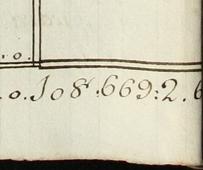 . o.
. o. 108 : 669 : 2. 6